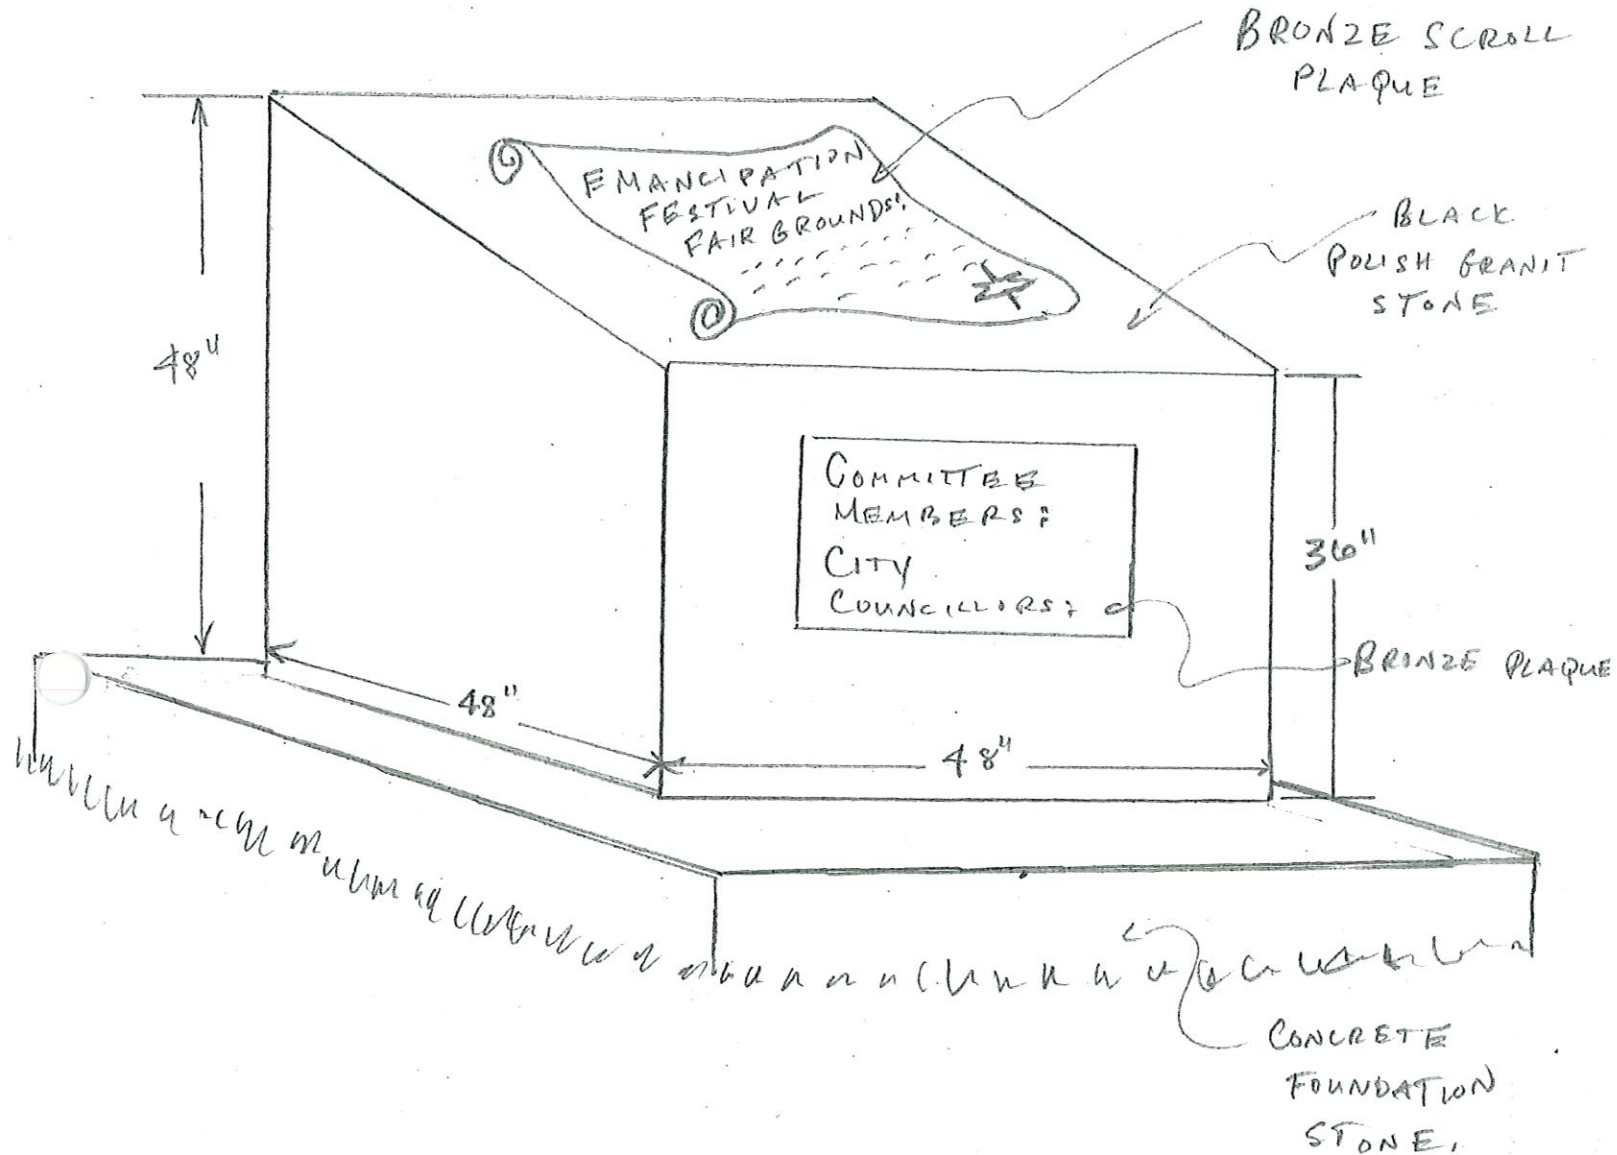 BRONZE SCROLL
PLAQUE
EMANCIPATION
FESTIVAL
FAIR GROUNDS!
BLACK
POLISH GRANIT
STONE
48"
COMMITTEE
MEMBERS:
CITY
COUNCILLORS:
36"
BRONZE PLAQUE
48"
48"
CONCRETE
FOUNDATION
STONE.